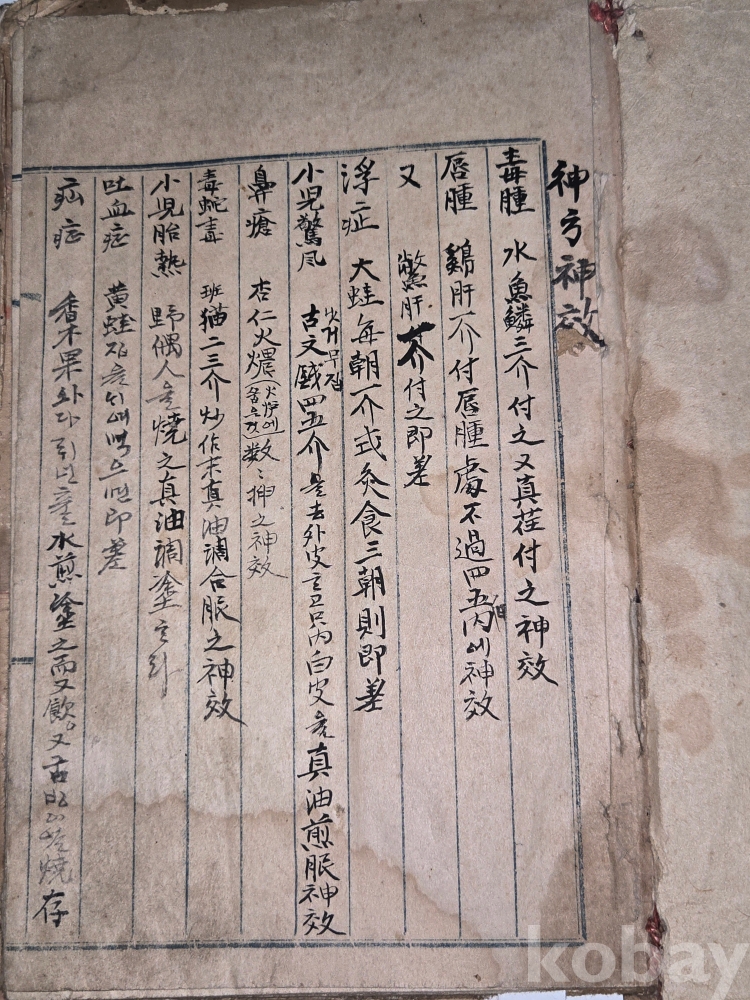 神方神效
毒腫 水魚鱗三介付之又真荏付之神效
唇腫 鷄肝一介付唇腫處不過四五日內에神效
又 鱉肝一介付之即差
浮症 大蛙每朝一介式灸食三朝則即差
小兒驚風 古文錢四五介 去外皮 고 只內白皮 真油煎服神效
鼻瘡 杏仁火煨 火炉에 数々押之神效
毒蛇毒 班猫二三介炒作末真油調合服之神效
小兒胎熱 野偶人 燒之真油調塗 라
吐血症 黃蛙 으면即差
疝症 香木果 水煎塗之而又飮。又古 燒存
kobay